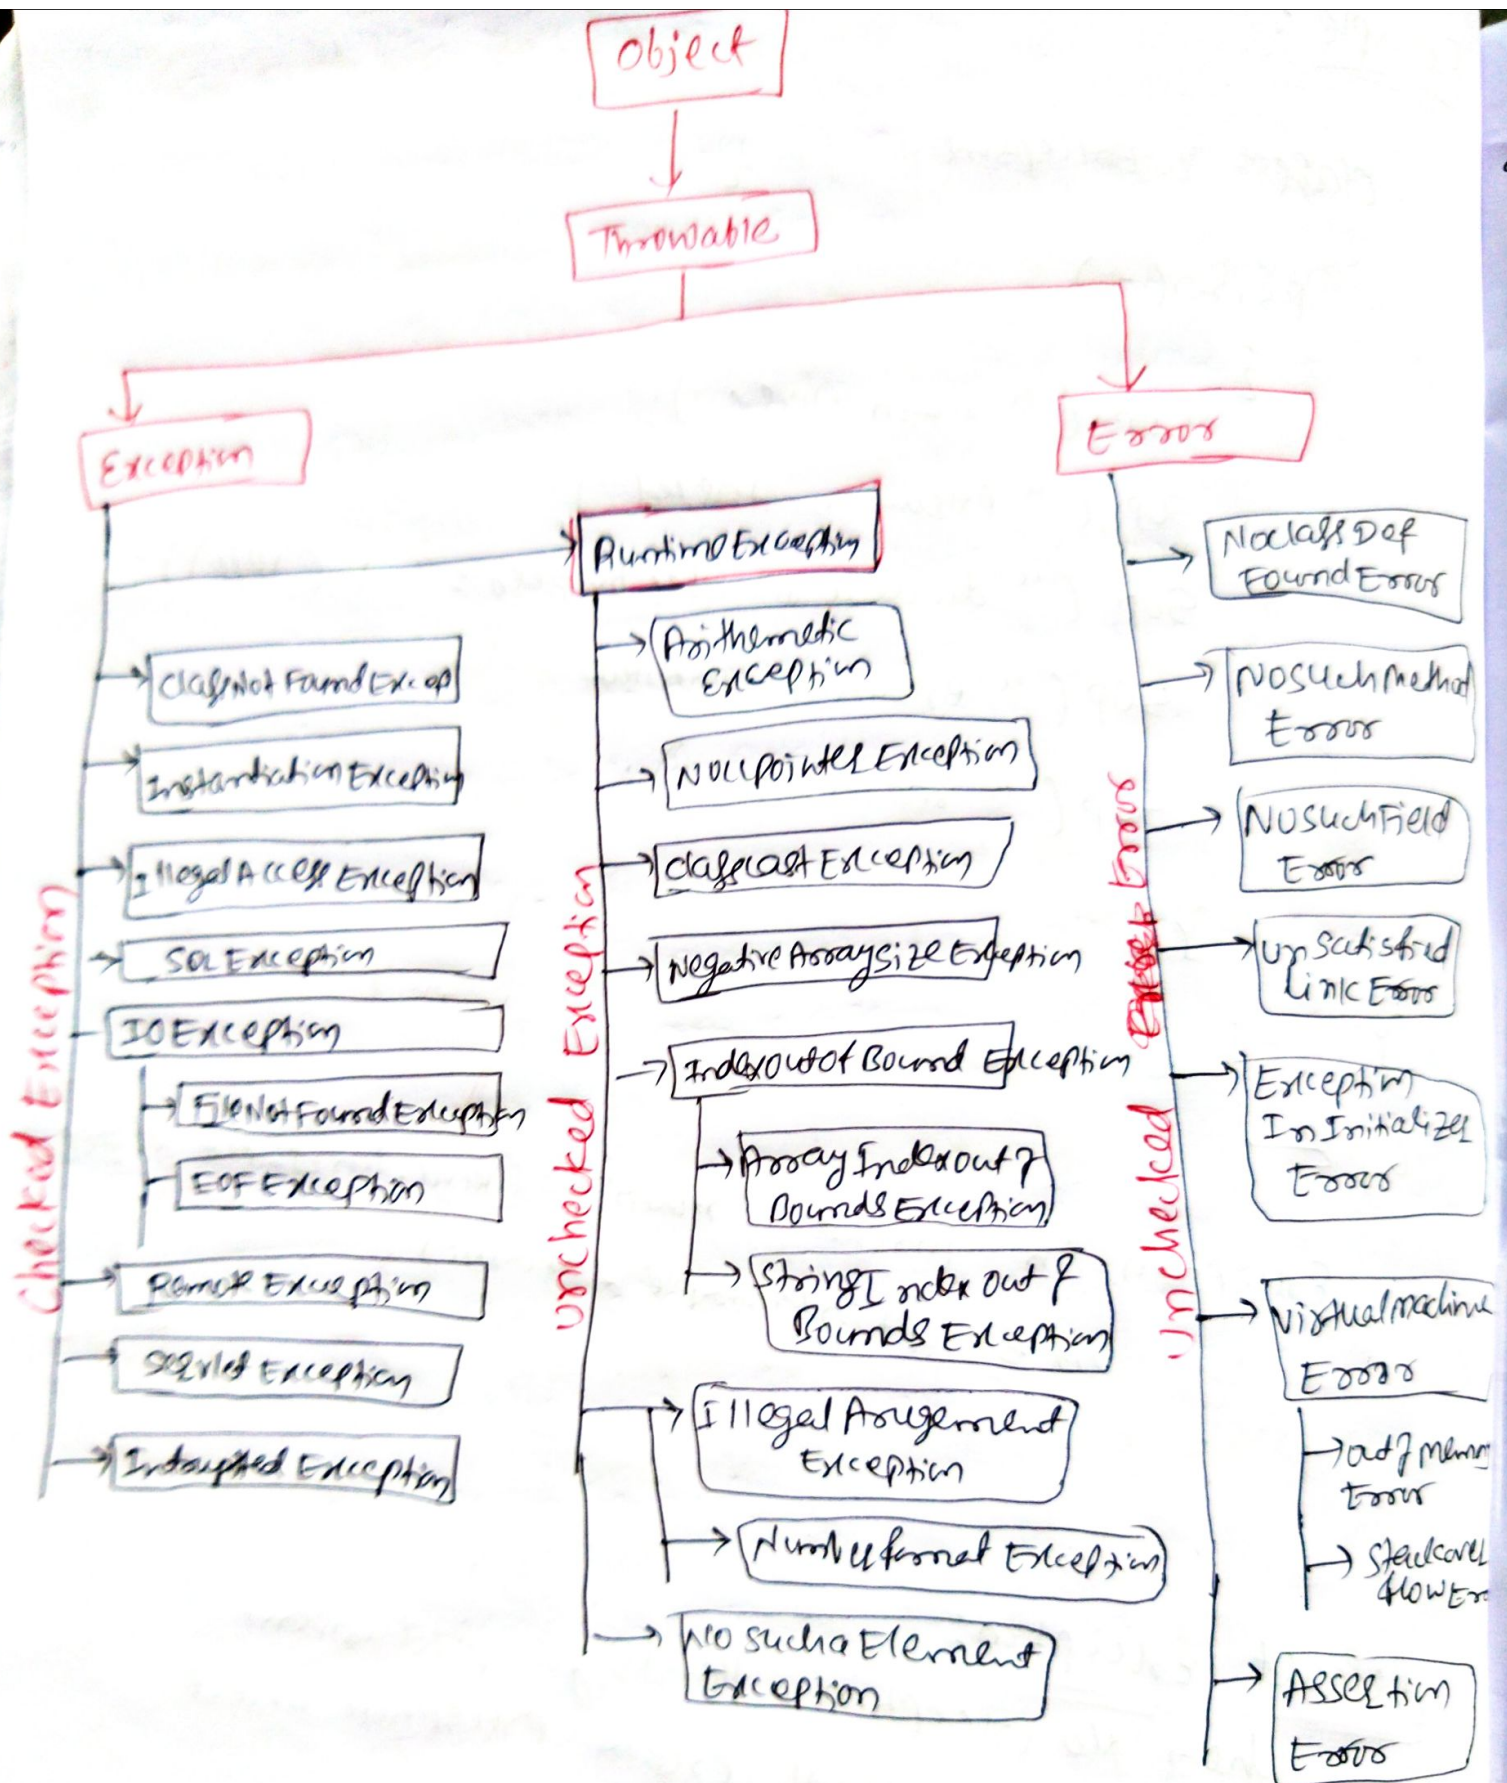 Object
Throwable
Exception
Error
Checked Exception
ClassNot Found Excep
Instantiation Exception
Illegal Access Exception
SQL Exception
IO Exception
FileNotFoundException
EOF Exception
Remote Exception
Servlet Exception
Interrupted Exception
Unchecked Exception
Runtime Exception
Arithemetic
Exception
Nullpointer Exception
classcast Exception
Negative Arraysize Exception
Indexoutof Bound Exception
Array Indexout of
Bounds Exception
String Index out of
Bounds Exception
Illegal Arugement
Exception
Numberformat Exception
No sucha Element
Exception
Unchecked
Error
NoclassDef
Found Error
NoSuchmethod
Error
NoSuchField
Error
Unsatisfied
link Error
Exception
In Initializer
Error
Virtualmachine
Error
out of memo
Error
Stackover
flow Er
Assertion
Error